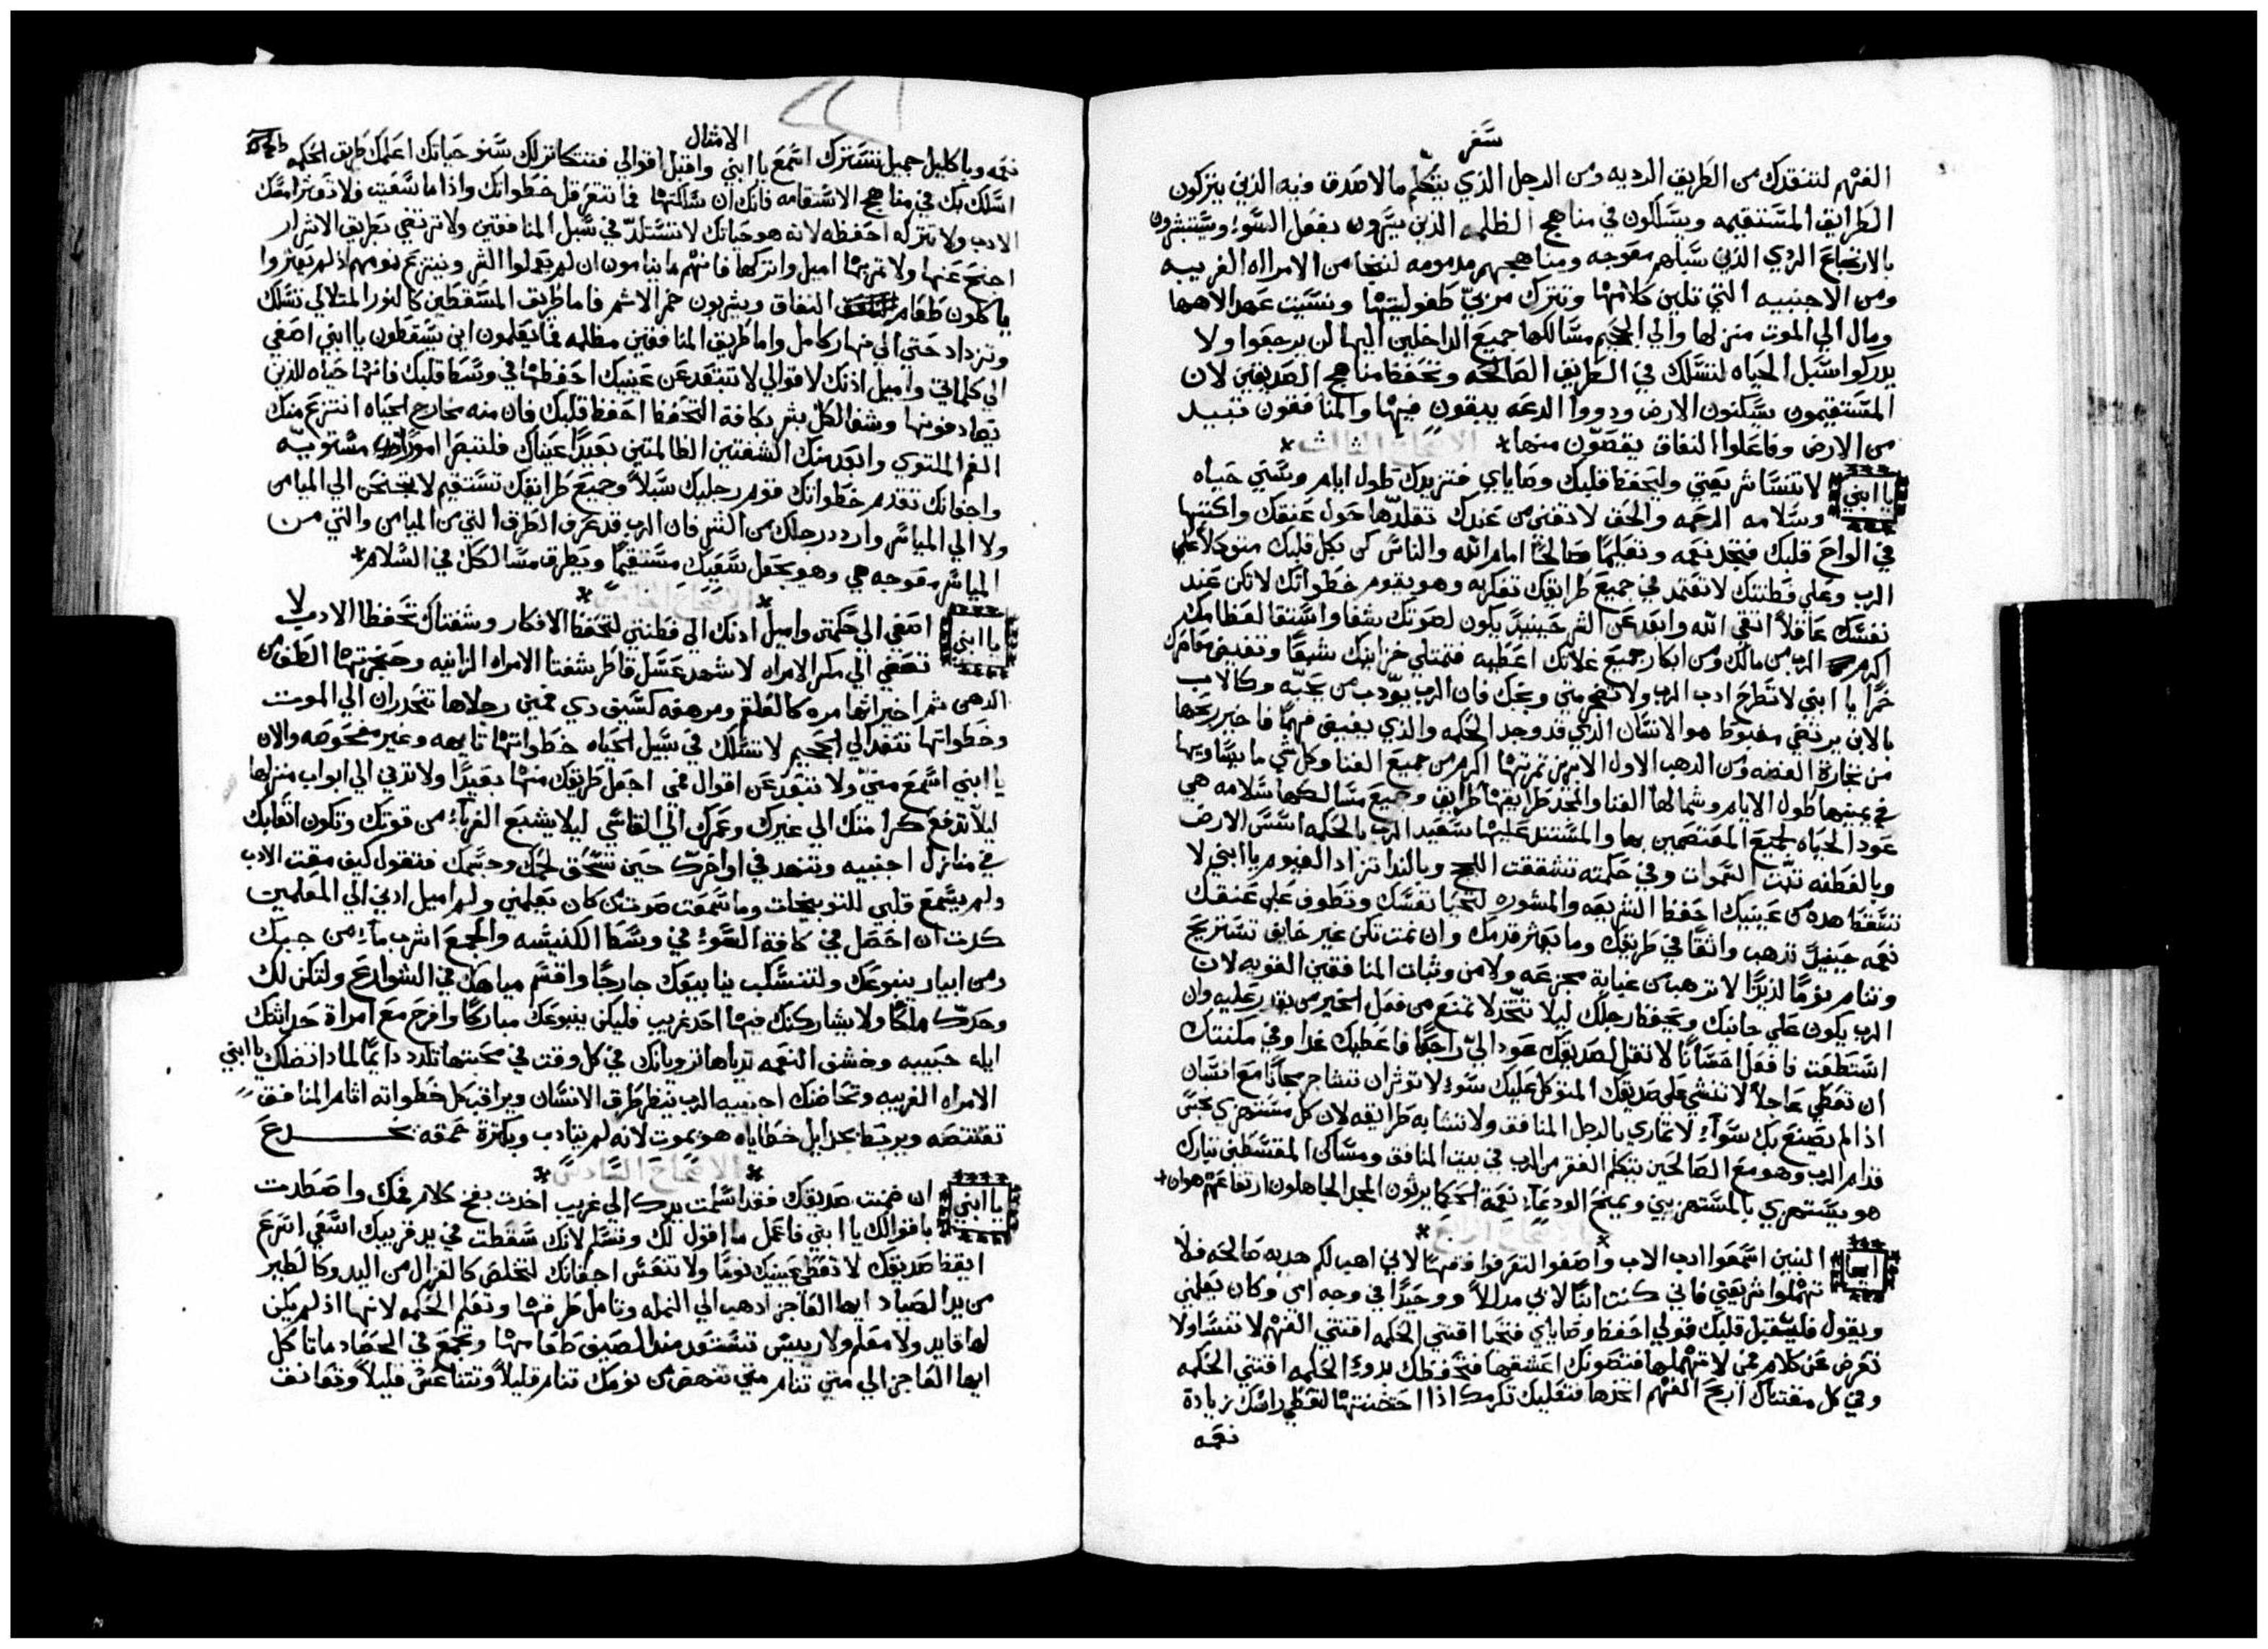 سفر
الفهم لتنقدك من الطريق الرديه ومن الرجل الذي يتكلم مالا صدق فيه الذين يتركون
الطرايق المستقيمه ويسلكون في مناهج الظلمه الذين يسرون بفعل السوء ويستبشرون
بالارتجاع الردي الذين سبلهم معوجه ومناهجهم مدمومه لتنجا من الامراه الغريبه
ومن الاجنبيه التي تلين كلامها وتترك مربي طفوليتها ونسيت عهد الاهها
ومال الي الموت منزلها والي الجحيم مسالكها جميع الداخلين اليها لن يرجعوا ولا
يدركوا سبل الحياه لتسلك في الطريق الصالحه وتحفظ مناهج الصديقين لان
المستقيمون يسكنون الارض ودووا الدعه يبقون فيها والمنافقون تبيد
من الارض وفاعلوا النفاق يقصون منها * الاصحاح الثالث *
يا ابني لا تنسا شريعتي وليحفظ قلبك وصاياي فتزيدك طول ايام وسني حياه
وسلامه الرحمه والحق لا تفني من عندك تقلدها حول عنقك واكتبها
في الواح قلبك فتجد نعمه وتعليما صالحا امام الله والناس كن بكل قلبك متوكلا علي
الرب وعلي فطنتك لا تعتمد في جميع طرايقك تفكر به وهو يقوم خطواتك لا تكن عند
نفسك عاقلا اتقي الله وابعد عن الشر حينيد يكون لصرتك شفا واستقا لعظامك
اكرم الرب من مالك ومن ابكار جميع غلاتك اعطيه فتمتلي خزاينك شبعا وتفيض معاصرك
خمرا يا ابني لا تطرح ادب الرب ولا تضجر متي وبخك فان الرب يودب من يحبه وكالاب
بالابن يرتضي مغبوط هو الانسان الذي قد وجد الحكمه والذي يفيض فهما فاخير ربحها
من تجارة الفضه ومن الدهب الاول الابريز ثمرتها اكرم من جميع الغنا وكل شي ما يساويها
في يمينها طول الايام وشمالها الغنا والمجد طرايقها طرايق وجميع مسالكها سلامه هي
عود الحياه لجميع المعتصمين بها والمستند عليها سعيد الرب بالحكمه اسس الارض
وبالفطنه ثبت السموات وفي حكمته تشققت اللجج وبالندا تزداد الغيوم يا ابني لا
تسقط هده من عينيك احفظ الشريعه والمشوره لتحيا نفسك وتطوف علي عنقك
نعمه حينيد تدهب واثقا في طريقك وما يعثر قدمك وان نمت تكن غير خايف تستريح
وتنام نوما لديدا لا ترهب من غيابة مجزعه ولا من وثبات المنافقين القويه لان
الرب يكون علي جانبك ويحفظ رجلك ليلا تتخد لا تمنع من فعل الخير من يقدر عليه وان
استطعت فافعل احسانا لا تقل لصديقك عود الي راجعا فاعطيك غدا وفي مكنتك
ان تعطي عاجلا لا تنشي علي صديقك المتوكل عليك سوء لا توثر ان تشاجر مجانا مع انسان
اذا لم يصنع بك سوآء لا تماري بالرجل المنافق ولا تتشابه طرايقه لان كل مستهزي نجس
قدام الرب وهو مع الصالحين يتكلم الفقر من الرب في بيت المنافق ومساكن المقسطين تبارك
هو يستهزي بالمستهزيين ويمنح الودعاء نعمة الحكما يرثون المجد الجاهلون ارتفاعهم هوان *
* الاصحاح الرابع *
ايها البنين اسمعوا ادب الاب واصغوا لتعرفوا فهما لاني اهب لكم هديه صالحه فلا
تهملوا شريعتي فاني كنت ابنا لابي مدللا ووحيدا في وجه امي وكان يعلمني
ويقول فليقبل قلبك قولي احفظ وصاياي فتحيا اقتني الحكمه اقتني الفهم لا تنسا ولا
تعرض عن كلام فمي لا تهملها فتصونك اعشقها فتحفظك بدوء الحكمه اقتني الحكمه
وفي كل مقتناك اربح الفهم اتخدها فتعليك تكرمك اذا احتضنتها لتعطي راسك زيادة
نعمه
الامثال
نعمه وباكليل جميل تسترك اسمع يا ابني واقبل اقوالي فتتكاثر لك سنو حياتك اعلمك طريق الحكمه
اسلك بك في مناهج الاستقامه فانك ان سلكتها فما تتعرقل خطواتك واذا ما سعيت فلا تعثر امسك
الادب ولا تتركه احفظه لانه هو حياتك لا تستلد في سبل المنافقين ولا ترتضي بطريق الاشرار
اجنح عنها ولا تمر بها اميل واتركها فانهم ما يناموت ان لم يعملوا الشر وينتزع نومهم اذ لم يعثروا
ياكلون طعام النفاق ويشربون خمر الاثم فاما طريق المسقطين كالنور المتلالي تسلك
وتزداد حتي الي نهار كامل واما طريق المنافقين مظلمه فما يعلمون اين يسقطون يا ابني اصغي
الي كلماتي واميل اذنك لاقوالي لا تبتعد عن عينيك احفظها في وسط قلبك فانها حياه للذين
يصادفونها وشفا لكل بشر بكافة التحفظ احفظ قلبك فان منه مخارج الحياه انتزع منك
الفم الملتوي وابعد منك الشفتين الظالمتين بعيدا عيناك فلتنصر امورا مستويه
واجفانك تتقدم خطواتك قوم رجليك سبلا وجميع طرايقك تستقيم لا تجنحن الي الميامن
ولا الي المياسر واردد رجلك من الشر فان الرب قد عرف الطرق التي من الميامن والتي من
المياسر معوجه هي وهو يجعل سعيك مستقيما ويطرق مسالكك في السلام *
* الاصحاح الخامس *
يا ابني اصغي الي حكمتي واميل ادنك الي فطنتي لتحفظ الافكار وشفتاك تحفظا الادب لا
تصغي الي مكر الامراه لا شهد عسل قاطر شفتا الامراه الزانيه وحنجرتها الطف من
الدهن ثم اخيراتها مره كالعلقم ومرهفه كسيف دي فمين رجلاها تنحدران الي الموت
وخطواتها تنفد الي الجحيم لا تسلك في سبيل الحياه خطواتها تايهه وغير مفحوصه والان
يا ابني اسمع مني ولا تبتعد عن اقوال فمي اجعل طريقك منها بعيدا ولا تدني الي ابواب منزلها
ليلا تدفع كرامتك الي غيرك وعمرك الي القاسي ليلا يشبع الغرباء من قوتك وتكون اتعابك
في منازل اجنبيه وتتنهد في اواخرك حين تسحق لحمك وجسمك فتقول كيف مقت الادب
ولم يسمع قلبي للتوبيخات وما سمعت صوت من كان يعلمني ولم اميل ادني الي المعلمين
كدت ان احصل في كافة السوء في وسط الكنيسه والجمع اشرب ماء من جبك
ومن ابيار ينبوعك ولتنسكب ينابيعك خارجا واقسم مياهك في الشوارع ولتكن لك
وحدك ملكا ولا يشاركنك فيها احد غريب فليكن ينبوعك مباركا وافرح مع امراة حداثتك
ايله حبيبه وخشف النعمه ثدياها يرويانك في كل وقت في محبتها تلدد دايما لمادا تضلك يا ابني
الامراه الغريبه وتحاضنك اجنبيه الرب ينظر طرق الانسان ويراقب كل خطواته اثام المنافق
تقتنصه ويربط بحبايل خطاياه هو يموت لانه لم يتادب وبكثرة حمقه يخدع
* الاصحاح السادس *
يا ابني ان ضمنت صديقك فقد اسلمت يدك الي غريب اخدت بفخ كلام فمك واصطدت
باقوالك يا ابني فاعمل ما اقول لك وتسلم لانك سقطت في يد قريبك اسعي اسرع
ايقظ صديقك لا تعطي عينيك نوما ولا تنعس اجفانك لتخلص كالغزال من اليد وكالطير
من يد الصياد ايها العاجز ادهب الي النمله وتامل طرقها وتعلم الحكمه لانها اذ لم يكن
لها قايد ولا معلم ولا رييس تستعد منذ الصيف طعامها وتجمع في الحصاد ما تاكل
ايها العاجز الي متي تنام متي تنهض من نومك تنام قليلا وتتناعس قليلا وتعانف